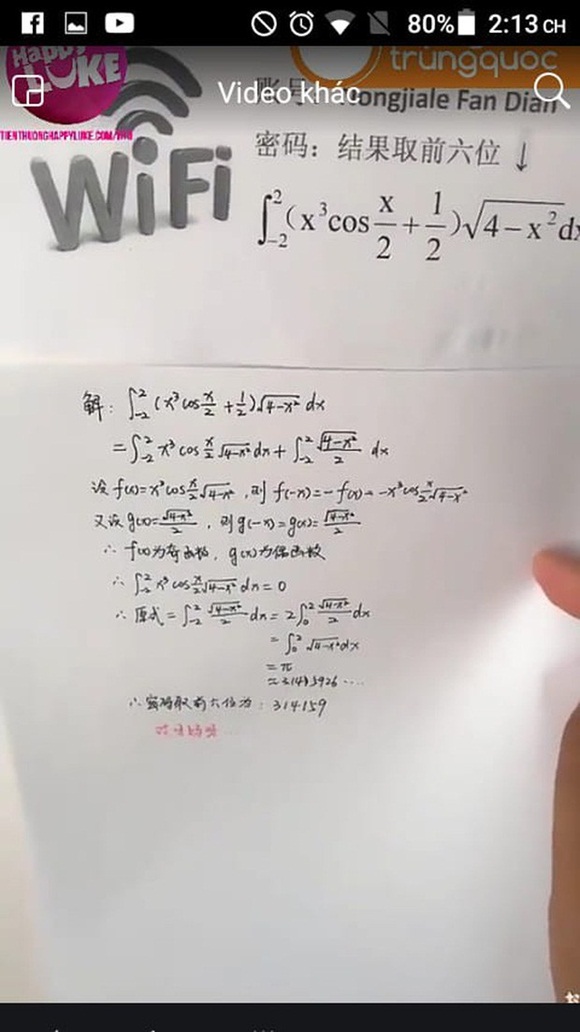 80% 2:13 CH
Happy
LUKE
trungquoc
Video khác
TIENTHUONGHAPPYLUKE.COM
WiFi
账号: Hongjiale Fan Dian
密码: 结果取前六位 ↓
∫_{-2}^{2}(x³cos x/2 + 1/2)√(4-x²)dx
解: ∫_{-2}^{2} (x³cos x/2 + 1/2)√(4-x²) dx
= ∫_{-2}^{2} x³cos x/2 √(4-x²) dx + ∫_{-2}^{2} √(4-x²)/2 dx
设 f(x)=x³cos x/2 √(4-x²), 则 f(-x)=-f(x)=-x³cos x/2 √(4-x²)
又设 g(x)=√(4-x²)/2, 则 g(-x)=g(x)=√(4-x²)/2
∴ f(x)为奇函数, g(x)为偶函数
∴ ∫_{-2}^{2} x³cos x/2 √(4-x²) dx=0
∴ 原式=∫_{-2}^{2} √(4-x²)/2 dx=2∫_{0}^{2} √(4-x²)/2 dx
=∫_{0}^{2} √(4-x²) dx
=π
≈3.1415926 ····
∴密码取前六位为: 314159